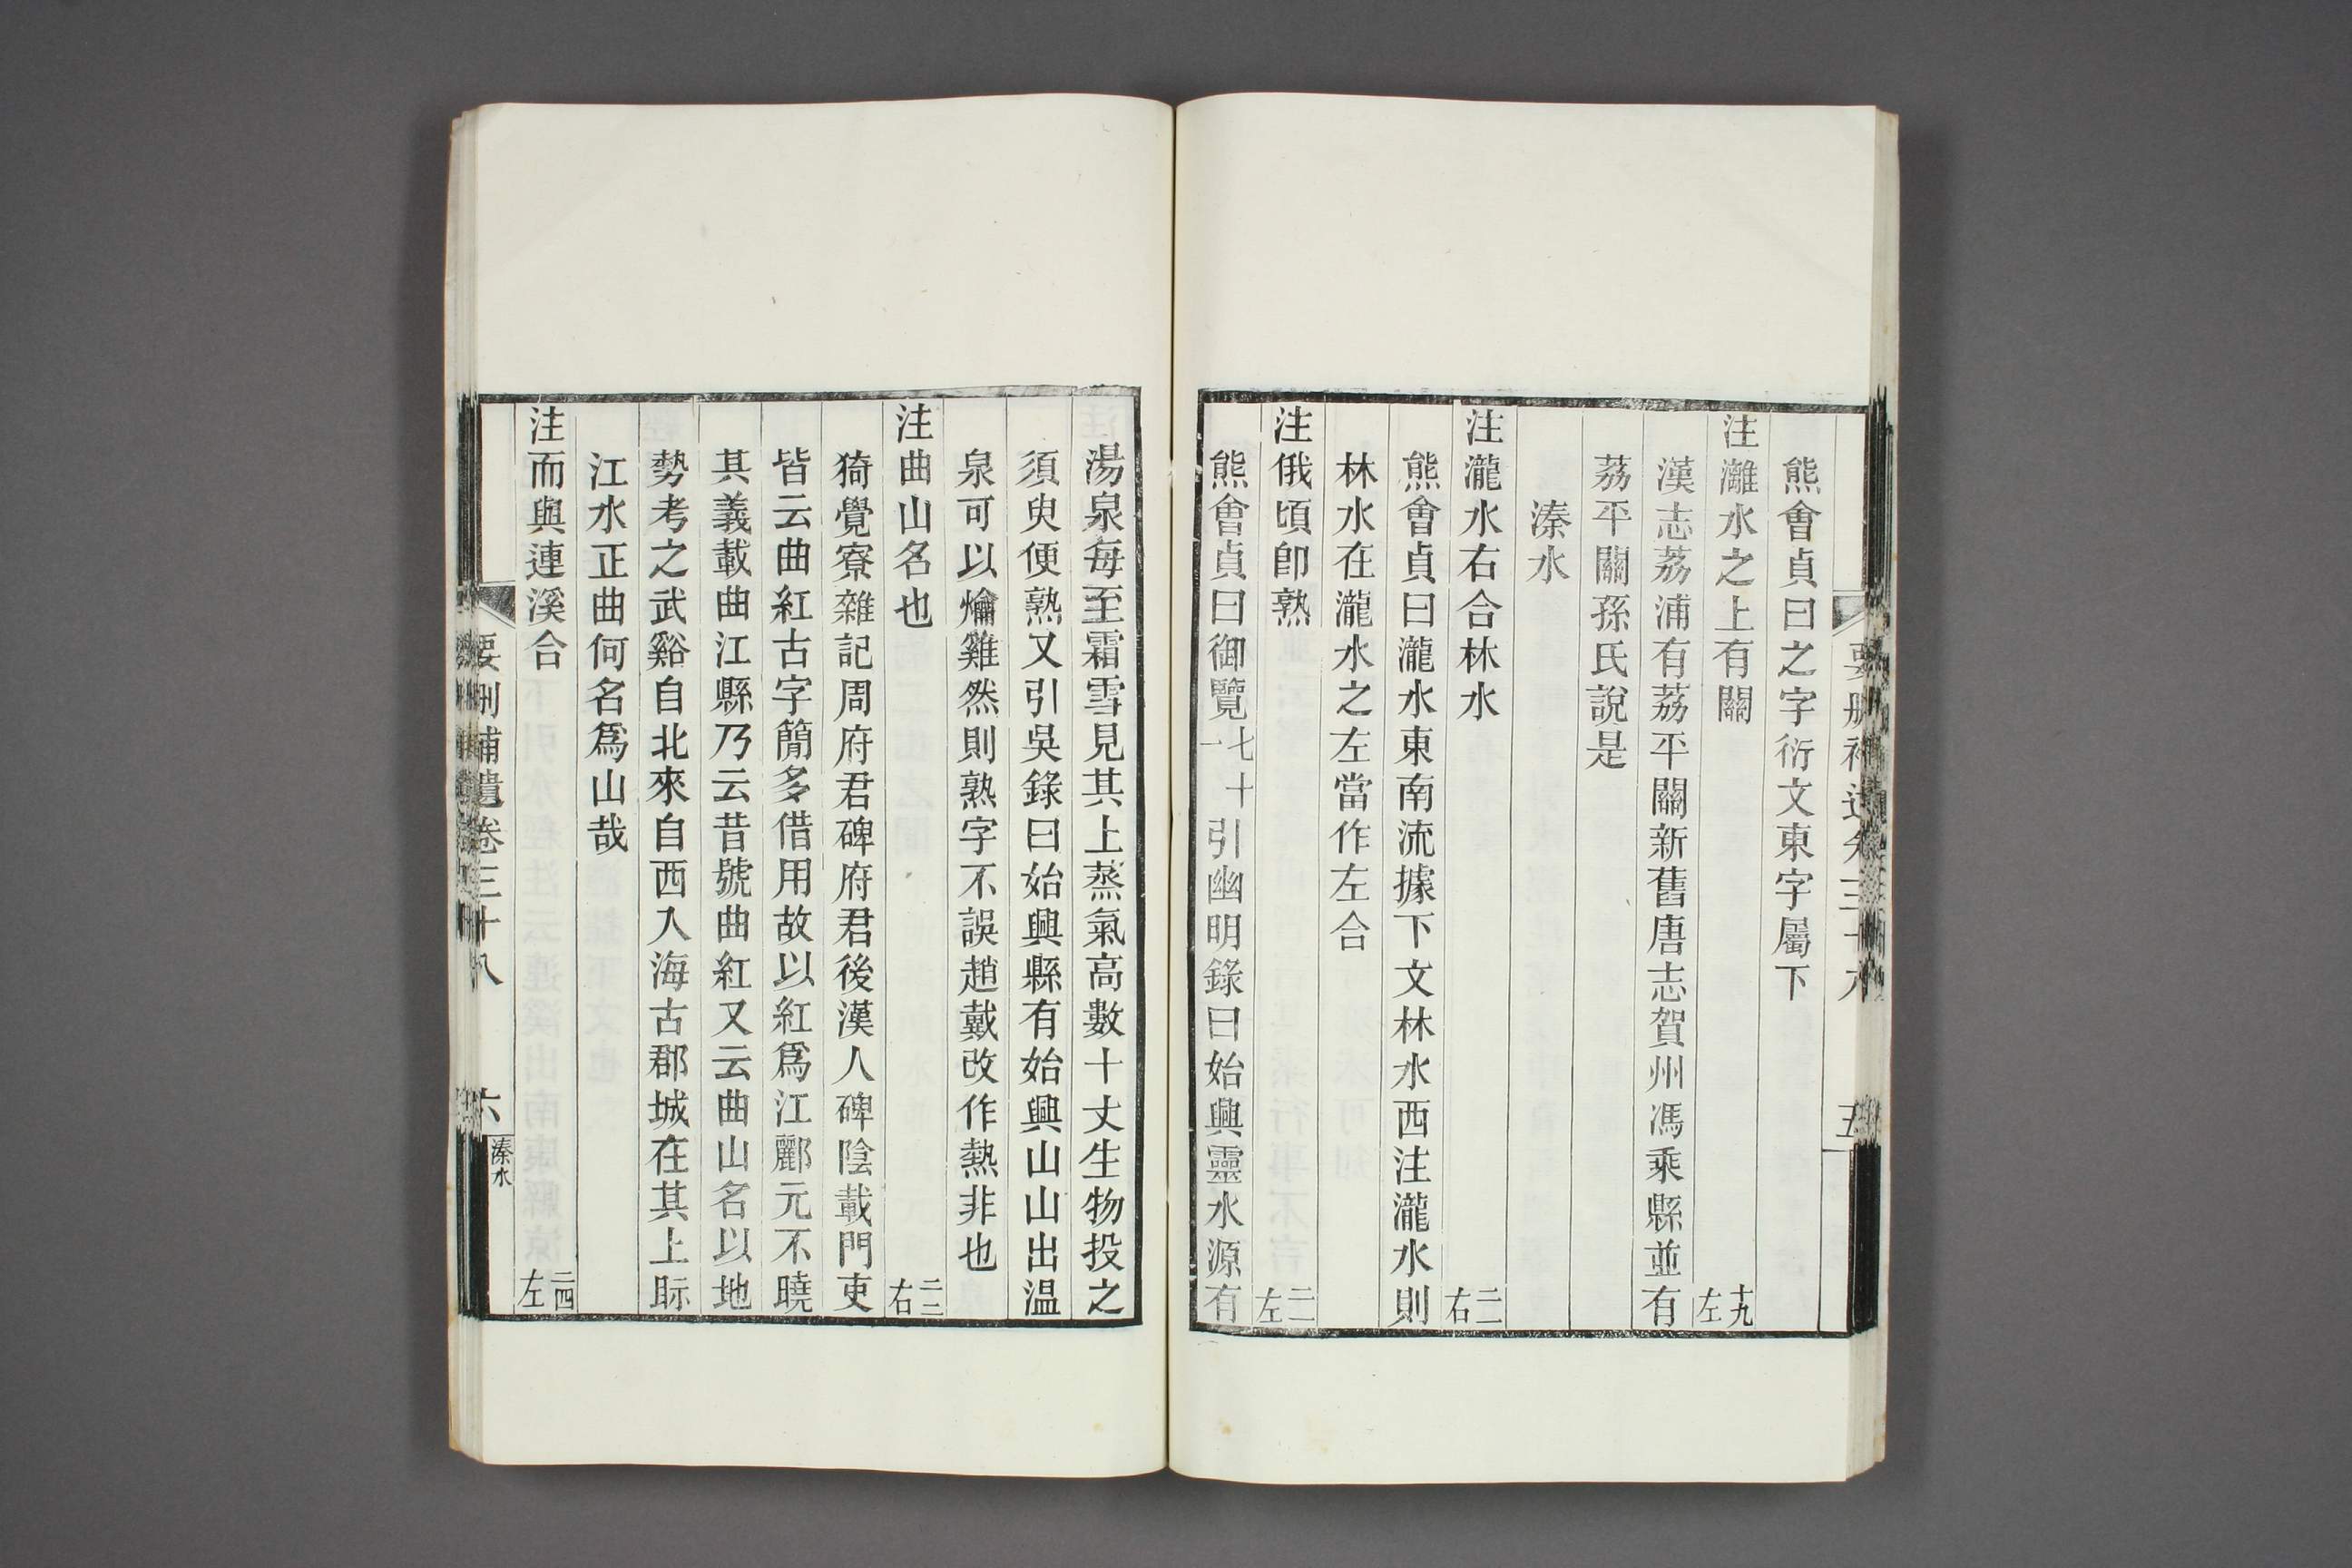 熊會貞曰之字衍文東字屬下
注灕水之上有關 十九左
漢志荔浦有荔平關新舊唐志賀州馮乘縣並有
荔平關孫氏說是
溱水
注瀧水右合林水 二一右
熊會貞曰瀧水東南流據下文林水西注瀧水則
林水在瀧水之左當作左合
注俄頃卽熟 二一左
熊會貞曰御覽七十一引幽明錄曰始興靈水源有
湯泉每至霜雪見其上蒸氣高數十丈生物投之
須臾便熟又引吳錄曰始興縣有始興山山出溫
泉可以爚雞然則熟字不誤趙戴改作熱非也
注曲山名也 二二右
猗覺寮雜記周府君碑府君後漢人碑陰載門吏
皆云曲紅古字簡多借用故以紅爲江酈元不曉
其義載曲江縣乃云昔號曲紅又云曲山名以地
勢考之武谿自北來自西入海古郡城在其上眎
江水正曲何名爲山哉
注而與連溪合 二四左
要刪補遺卷三十八 六 溱水